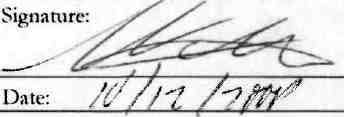 Signature:
Date: 10/12/2008